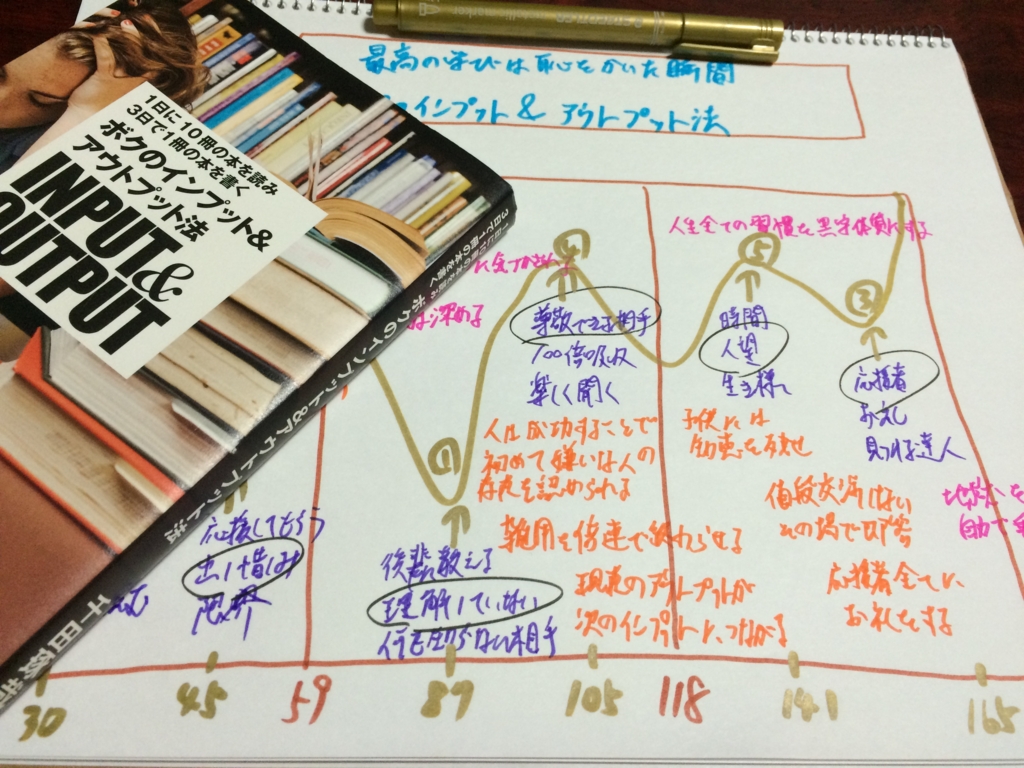 最高の学びは恥をかいた瞬間
インプット & アウトプット法
1日に10冊の本を読み
3日で1冊の本を書く
ボクのインプット&
アウトプット法
INPUT&
OUTPUT
3日で1冊の本を書く
1日に10冊の本を読み
ボクのインプット&アウトプット法
千田琢哉
人生全ての習慣を黒字体質にする
深める
④
⑤
③
尊敬できる相手
100倍吸収
楽しく聞く
時間
人望
生き様
応援者
お礼
見つける達人
人は成功することで
初めて嫌いな人の
存在を認められる
子供には
知恵を残せ
雑用を倍速で終わらせる
値段交渉はしない
その場で
応援してもらう
出し惜しみ
限界
後輩に教える
理解していない
何も知らない相手
現在のアウトプットが
次のインプットに、つながる
応援者全てに、
お礼をする
30
45
59
87
105
118
141
165